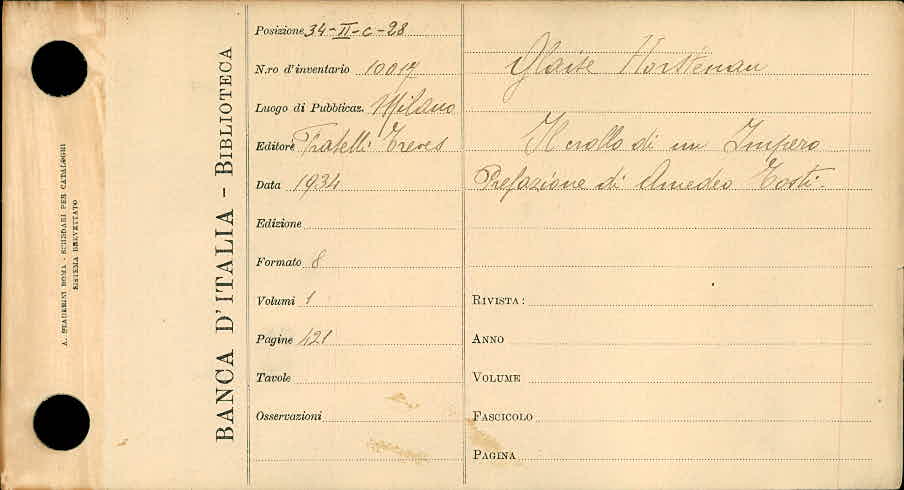 A. STADERINI ROMA - SCHEDARI PER CATALOGHI
SISTEMA BREVETTATO
BANCA D'ITALIA - BIBLIOTECA
Posizione 34-II-c-28
N.ro d'inventario 10017
Luogo di Pubblicaz. Milano
Editore Fratelli Treves
Data 1934
Edizione
Formato 8
Volumi 1
Pagine 421
Tavole
Osservazioni
Glaise Horstenau
Il crollo di un Impero
Prefazione di Amedeo Tosti.
RIVISTA:
ANNO
VOLUME
FASCICOLO
PAGINA